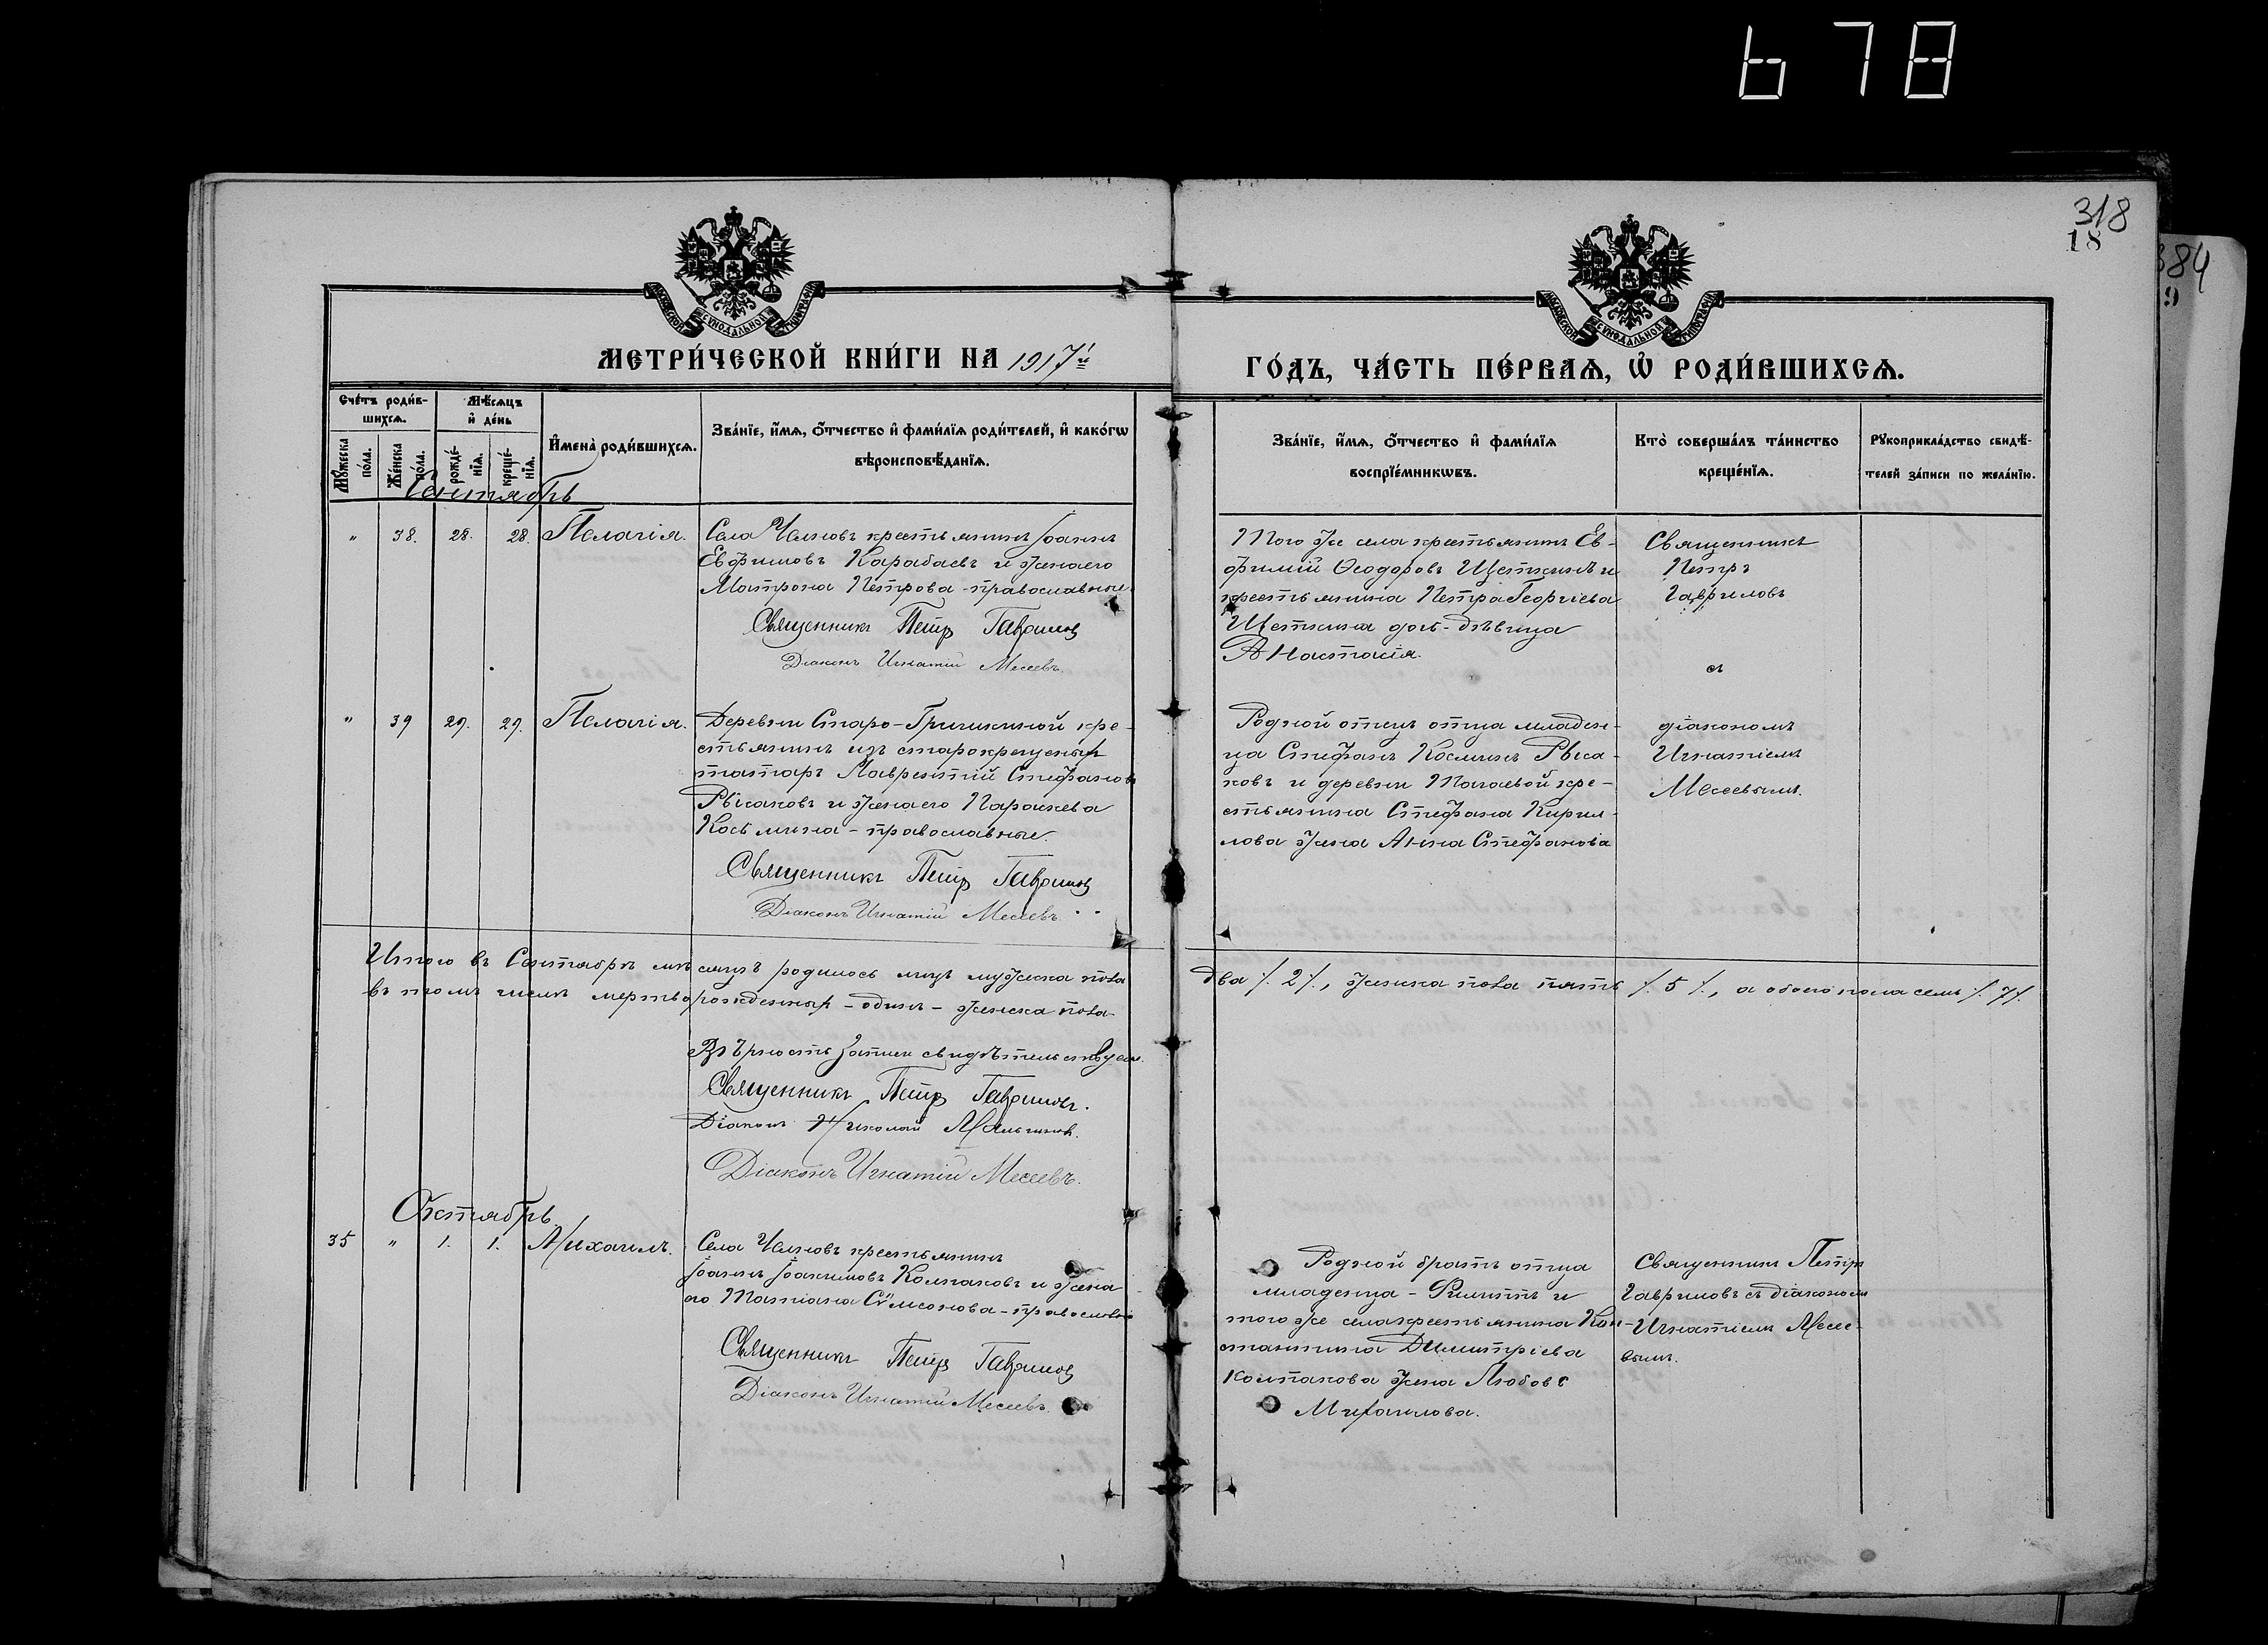 678
318
18
384
МОСКОВСКОЙ СѴНОДАЛЬНОЙ ТИПОГРАФІИ
МОСКОВСКОЙ СѴНОДАЛЬНОЙ ТИПОГРАФІИ
МЕТРИ́ЧЕСКОЙ КНИ́ГИ НА 1917й
ГО́ДЪ, ЧА́СТЬ ПЕ́РВАѦ, Ѡ҆ РОДИ́ВШИХСѦ.
Сче́тъ роди́в-
шихсѧ.
Мѣ́сѧцъ
и҆ де́нь
Мꙋ́жеска
по́ла.
Же́нска
по́ла.
рожде́-
нїѧ.
креще́-
нїѧ.
И҆мена̀ роди́вшихсѧ.
Зва́нїе, и҆́мѧ, ѻ҆́тчество и҆ фами́лїѧ роди́телей, и҆ како́гѡ
вѣроисповѣ́данїѧ.
Зва́нїе, и҆́мѧ, ѻ҆́тчество и҆ фами́лїѧ
воспрїе́мникѡвъ.
Кто̀ соверша́лъ та́инство
креще́нїѧ.
Рꙋкоприкла́дство свидѣ́-
телей за́писи по жела́нїю.
Сентябрь
" 38. 28. 28. Пелагія.
Села Челновъ крестьянинъ Іоаннъ
Евфимовъ Карабаевъ и жена его
Матрона Петрова - православные.
Священникъ Петръ Гавриловъ
Діаконъ Игнатій Месеевъ.
Того же села крестьянинъ Ев-
фимій Ѳеодоровъ Щеткинъ и
крестьянина Петра Георгіева
Щеткина дочь - дѣвица
Анастасія.
Священникъ
Петръ
Гавриловъ
съ
" 39 29. 29. Пелагія.
Деревни Старо-Гришкиной кре-
стьянинъ изъ старокрещеныхъ
татаръ Лаврентій Стефановъ
и жена его Параскева
Косьмина - православные.
Священникъ Петръ Гавриловъ
Діаконъ Игнатій Месеевъ.
Родной отецъ отца младен-
ца Стефанъ Косьминъ
и деревни Тагаевой кре-
стьянина Стефана Кирил-
лова жена Анна Стефанова
діакономъ
Игнатіемъ
Месеевымъ.
Итого въ Сентябрѣ мѣсяцѣ родилось лицъ мужска пола два /. 2 /., женска пола пять /. 5 /., а обоего пола семь /. 7 /.
въ томъ числѣ мертворожденныхъ - одинъ - женска пола
Вѣрность записи свидѣтельствуемъ.
Священникъ Петръ Гавриловъ.
Діаконъ Николай
Діаконъ Игнатій Месеевъ.
Октябрь
35 " 1. 1. Михаилъ.
Села Челновъ крестьянинъ
Іоаннъ Іоакимовъ Колпаковъ и жена
его Татіана Сѵмеонова - православные
Священникъ Петръ Гавриловъ
Діаконъ Игнатій Месеевъ.
Родной братъ отца
младенца - Филиппъ и
того же села крестьянина Кон-
стантина Димитріева
Колпакова жена Любовь
Михаилова.
Священникъ Петръ
Гавриловъ съ діакономъ
Игнатіемъ Месее-
вымъ.